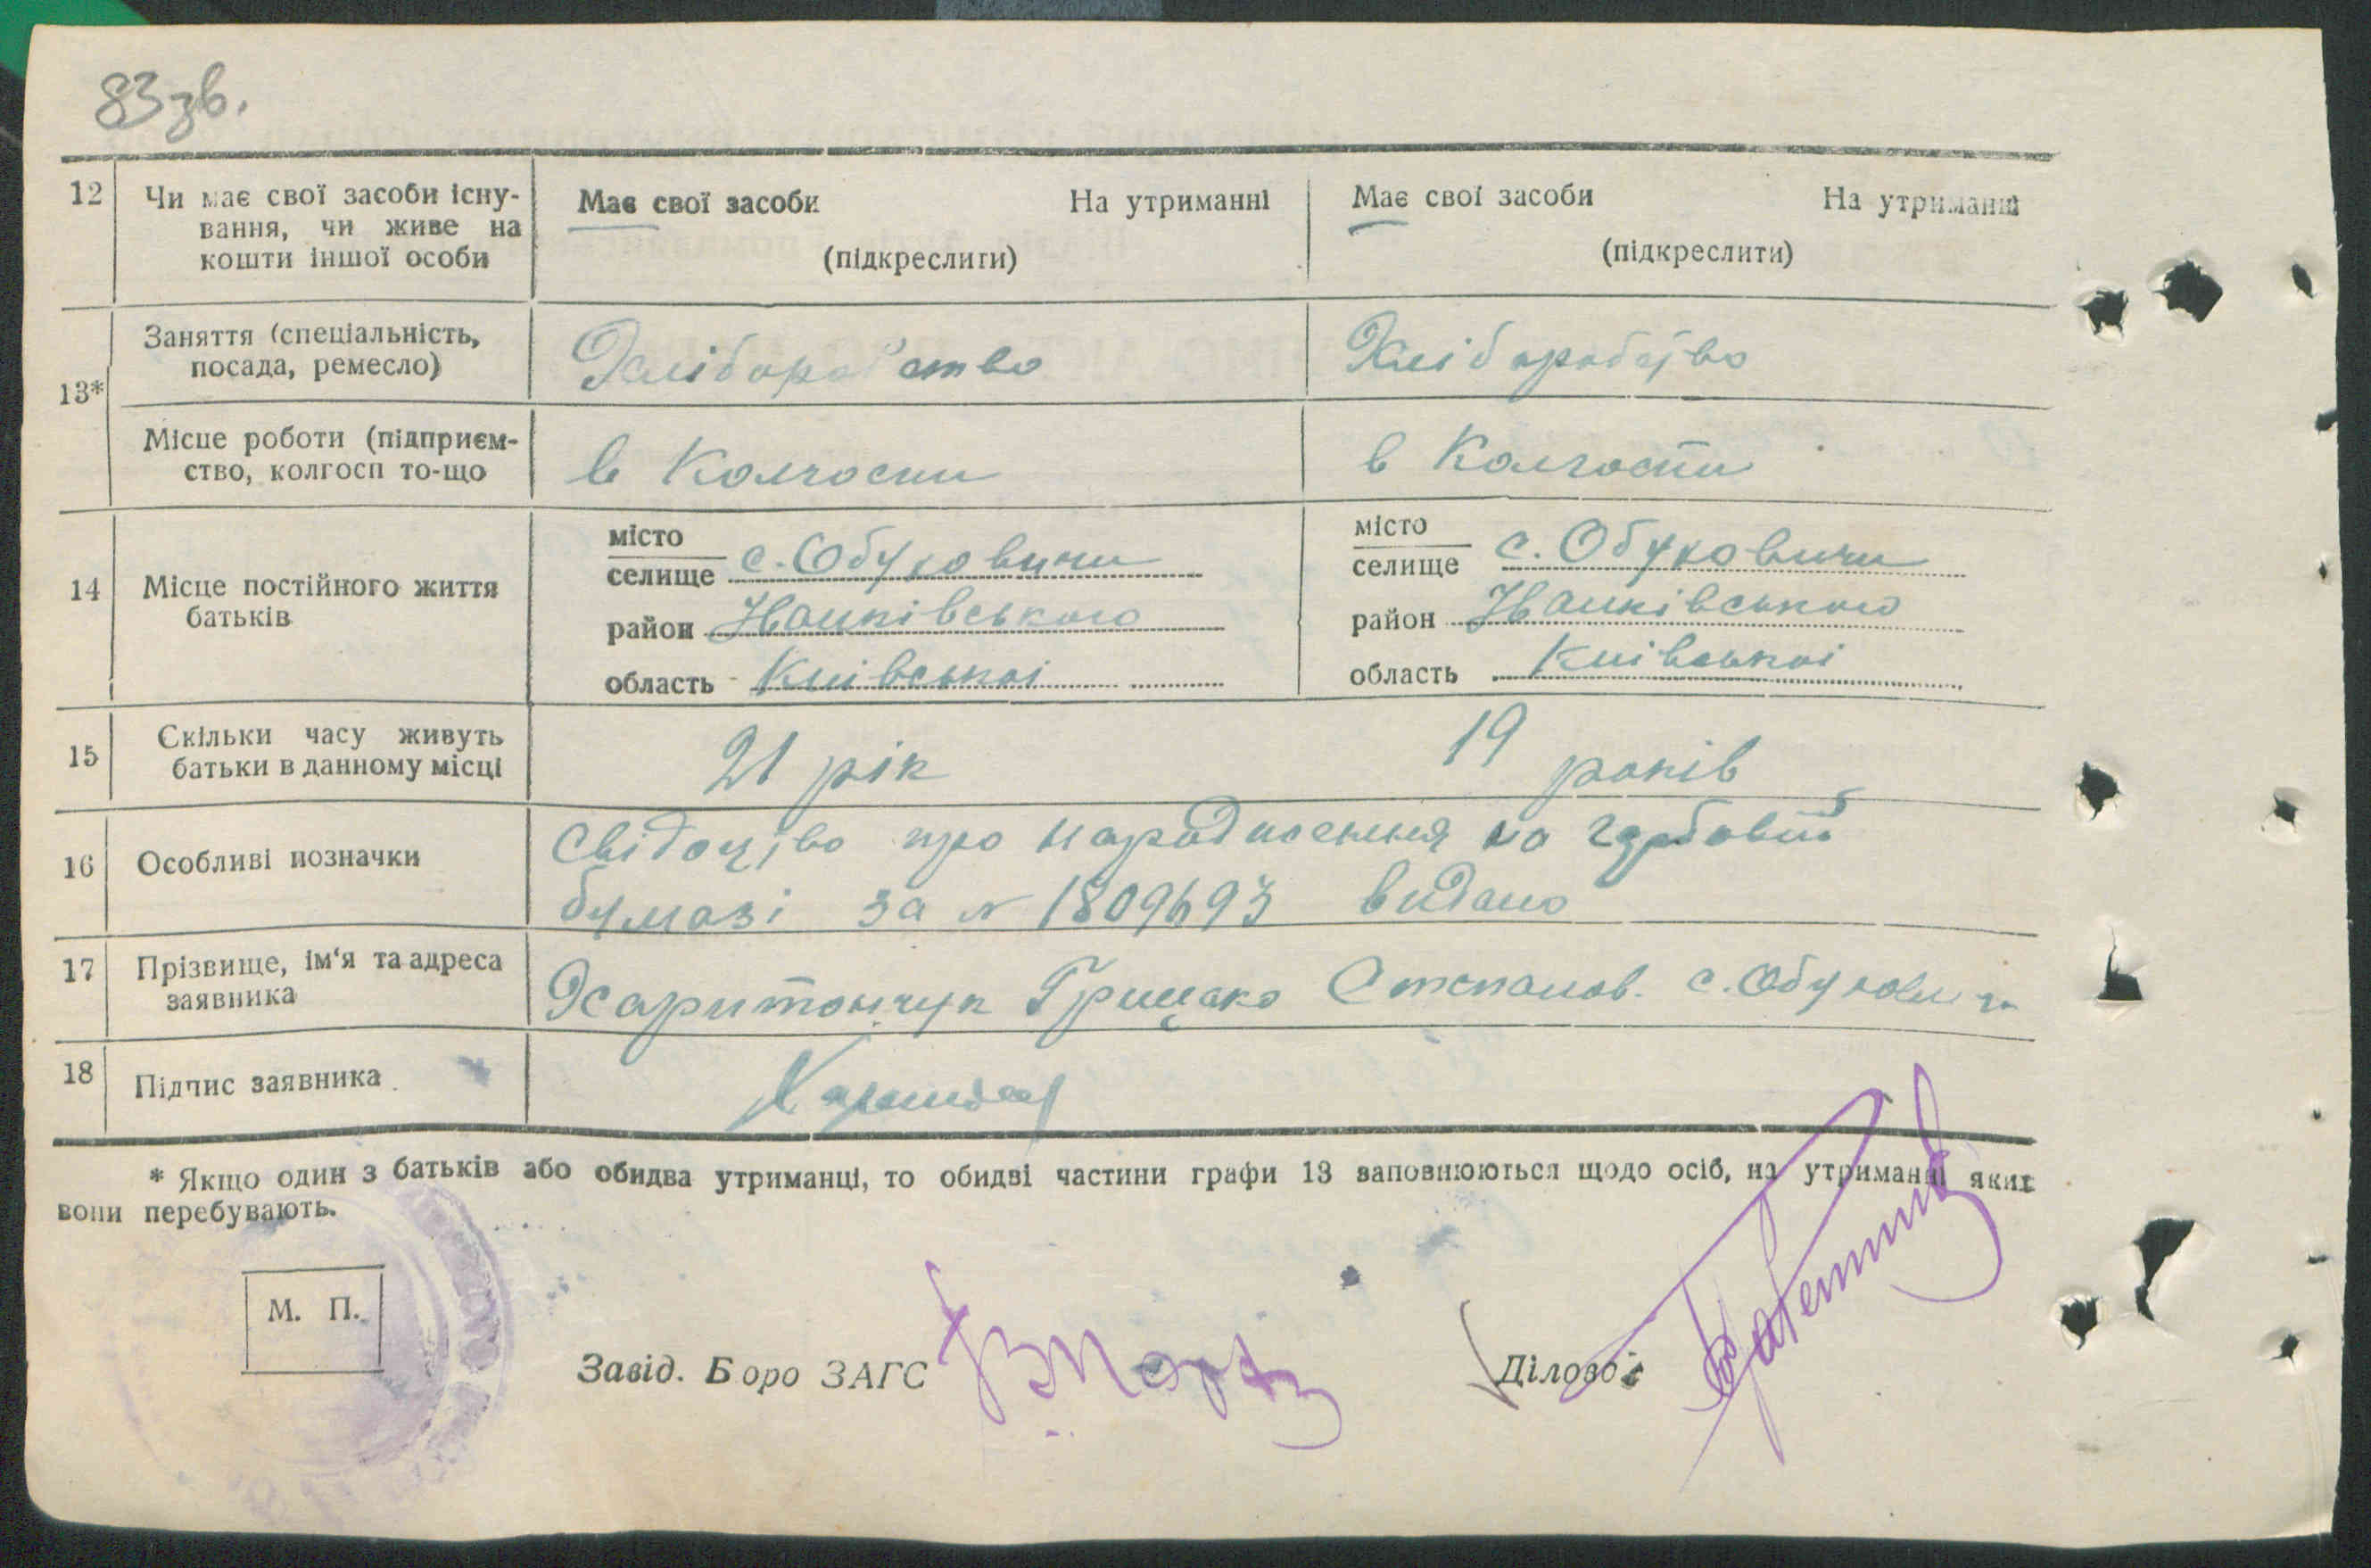 83 зв.
12 Чи має свої засоби існу-
вання, чи живе на
кошти іншої особи
Має свої засоби На утриманні
(підкреслити)
Має свої засоби На утриманні
(підкреслити)
13*
Заняття (спеціальність,
посада, ремесло)
Хліборобство
Хліборобство
Місце роботи (підприєм-
ство, колгосп то-що
в Колгоспи
в Колгоспи
14 Місце постійного життя
батьків
місто
селище с. Обуховичи
район Иванківського
область Київської
місто
селище с. Обуховичи
район Иванківського
область Київської
15 Скільки часу живуть
батьки в данному місці
21 рік
19 років
16 Особливі позначки
Свідоцтво про народження на гербовій
бумазі за № 1809693 видано
17 Прізвище, ім'я та адреса
заявника
Харитончук Грицько Степанов. с. Обуховичи
18 Підпис заявника
* Якщо один з батьків або обидва утриманці, то обидві частини графи 13 заповнюються щодо осіб, на утриманні яких
вони перебувають.
М. П.
Завід. Бюро ЗАГС
Діловод